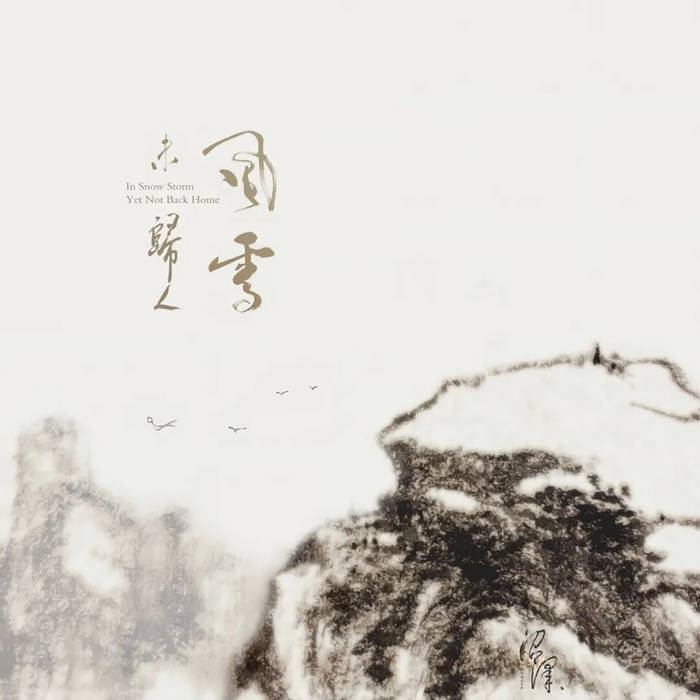 風雪
未歸人
In Snow Storm
Yet Not Back Home
沼澤